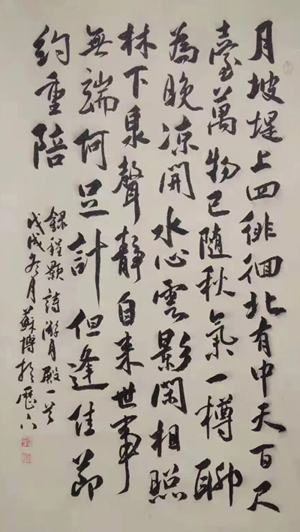 月坡堤上四徘徊北有中天百尺
臺萬物已隨秋氣一樽聊
為晚涼開水心雲影閑相照
林下泉聲靜自来世事
無端何足計但逢佳節
約重陪
錄程顥詩游月殿一首
戊戌冬月蘇博於歷下